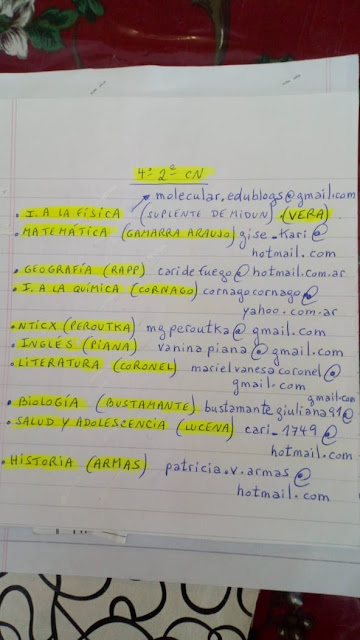 4º 2ª CN
molecular.edublogs@gmail.com
• I. A LA FÍSICA (SUPLENTE DE MIDUN) (VERA)
• MATEMÁTICA (GAMARRA ARAUJO) gise_Kari@
hotmail.com
• GEOGRAFÍA (RAPP) caridefuego@hotmail.com.ar
• I. A LA QUÍMICA (CORNAGO) cornagocornago@
yahoo.com.ar
• NTICX (PEROUTKA) mgperoutka@gmail.com
• INGLÉS (PIANA) vaninapiana@gmail.com
• LITERATURA (CORONEL) marielvanesacoronel@
gmail.com
• BIOLOGÍA (BUSTAMANTE) bustamantegiuliana91@
gmail.com
• SALUD Y ADOLESCENCIA (LUCENA) cari_1749@
hotmail.com
• HISTORIA (ARMAS) patricia.v.armas@
hotmail.com